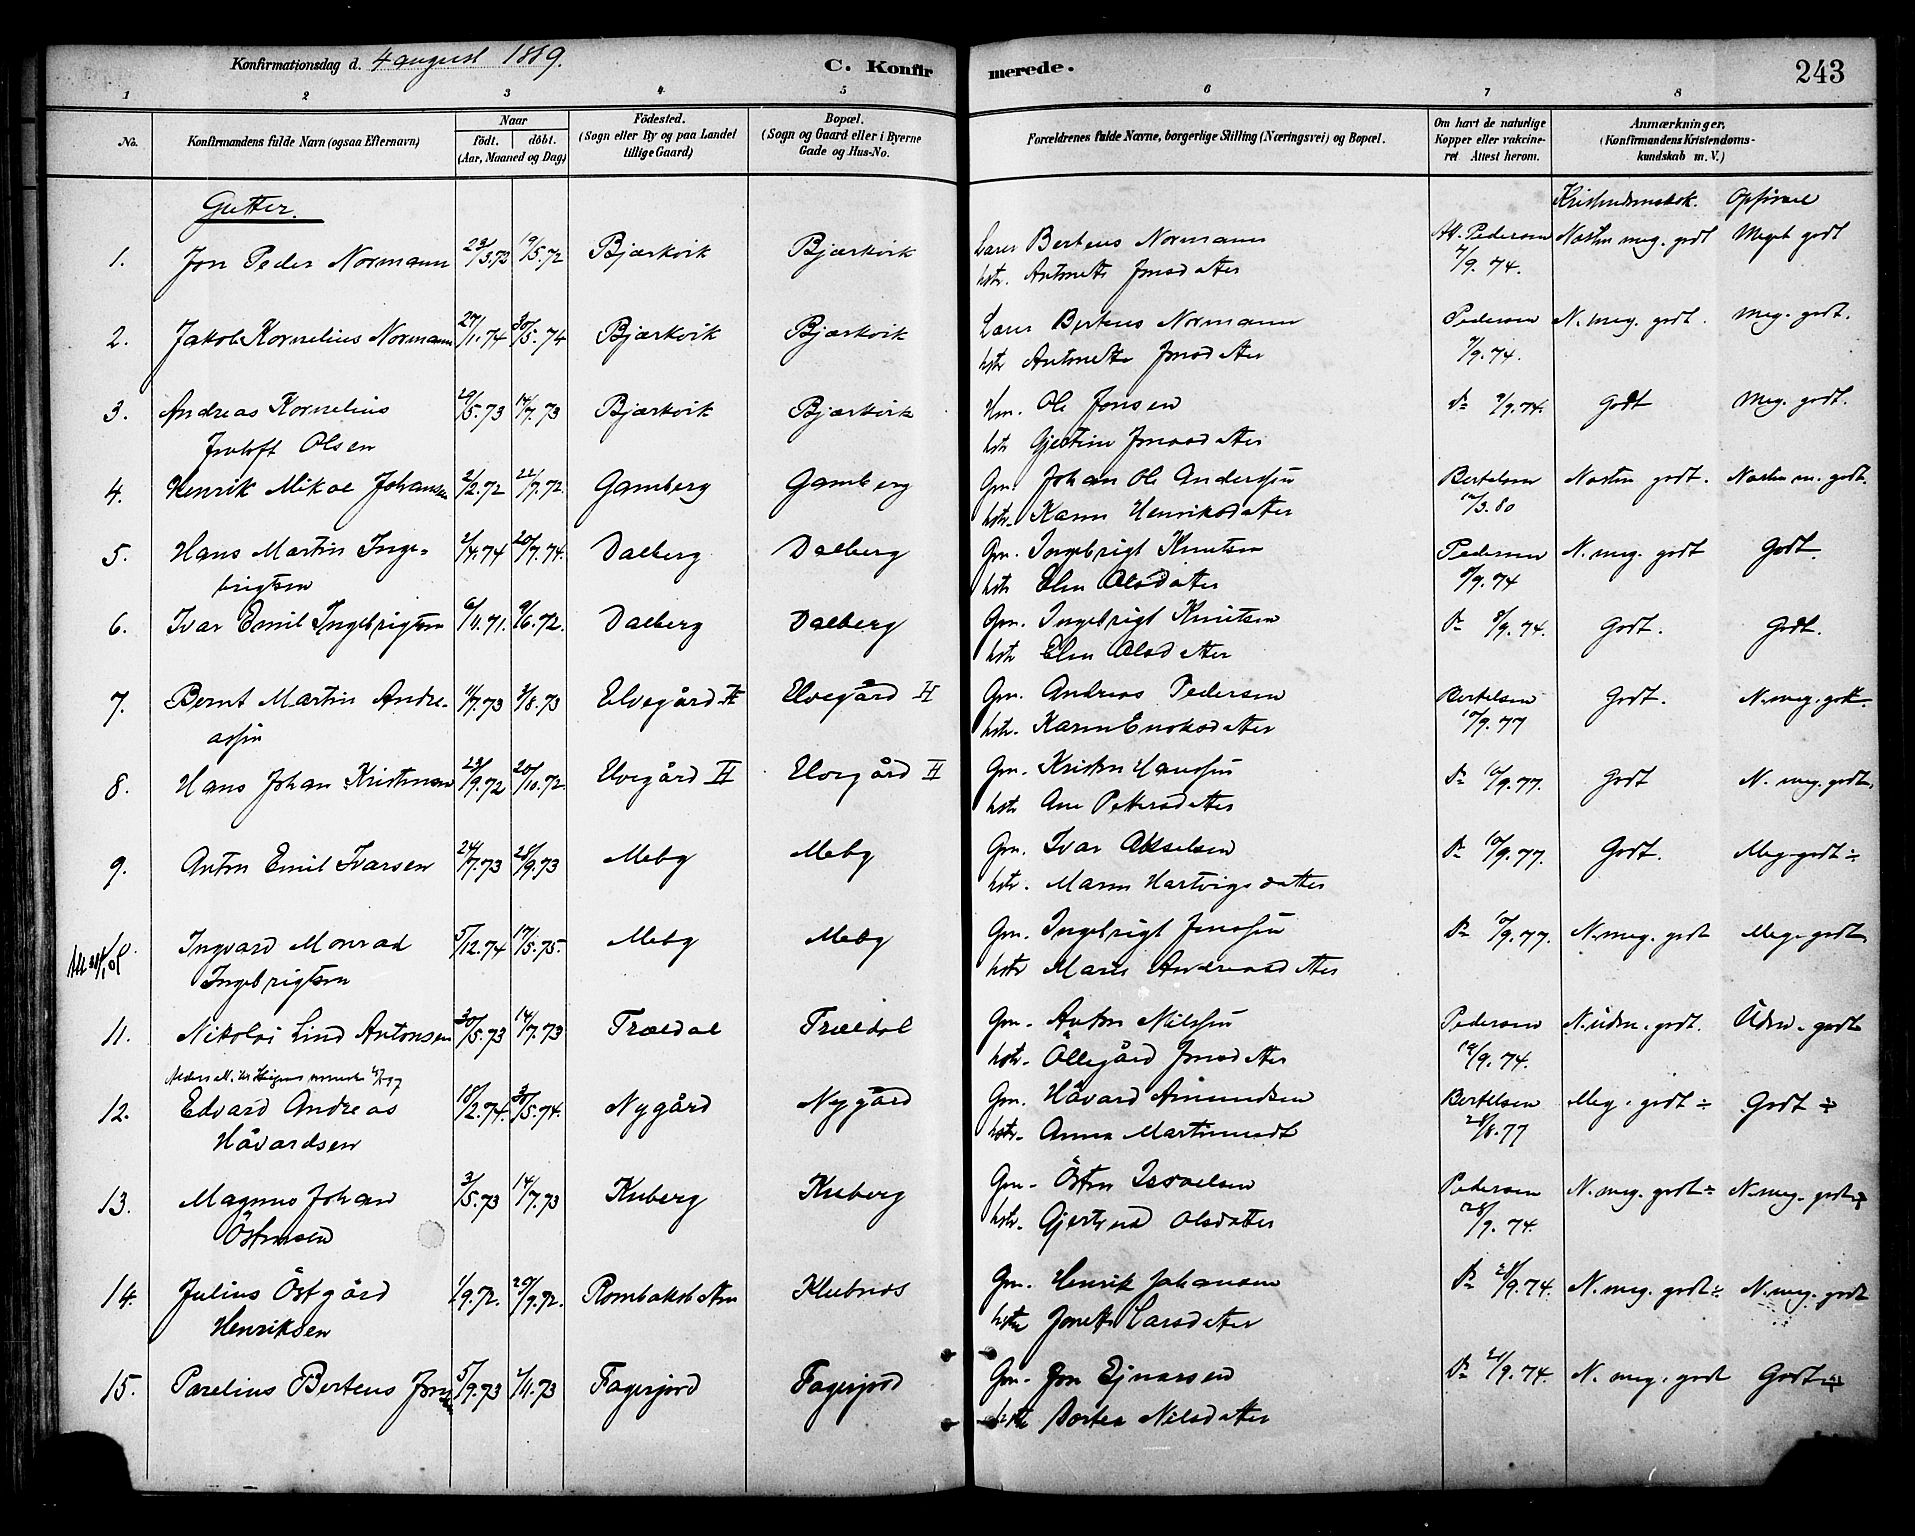 Konfirmationsdag d. 4 august 1889. C. Konfirmerede. 243
1 2 3 4 5 6 7 8
No. Konfirmandens fulde Navn (ogsaa Efternavn) Naar födt. döbt. (Aar, Maaned og Dag) Födested. (Sogn eller By og paa Landet tillige Gaard) Bopæl. (Sogn og Gaard eller i Byerne Gade og Hus-No. Forældrenes fulde Navne, borgerlige Stilling (Næringsvei) og Bopæl. Om havt de naturlige Kopper eller vakcineret Attest herom. Anmærkninger. (Konfirmandens Kristendomskundskab m. V.)
Gutter. Opförsel
1. Jon Peder Normann 23/3.72 19/5.72 Bjærkvik Bjærkvik Lærer Berteus Normann Att. Pedersen Næsten meg. godt Meget godt
hstr. Antonette Jonsdatter 7/9.74.
2. Jakob Kornelius Normann 27/1.74 30/5.74 Bjærkvik Bjærkvik Lærer Berteus Normann Pedersen N. meg. godt. Meg. godt.
hstr Antonette Jonsdatter 7/9.74.
3. Andreas Kornelius 29/5.73 14/7.73 Bjærkvik Bjærkvik Hm. Ole Jonsen Do 7/9.74. Godt Meg. godt.
Olsen hstr. Gjertine Jonasdatter
4. Henrik Mikal Johansen 2/2.72 22/7.72. Gamberg Gamberg Gm. Johan Ole Anderssen Bertelsen Næsten godt. Næsten m. godt.
hstr. Karen Henriksdatter 12/3.80
5. Hans Martin Inge- 2/4.74 20/7.74. Dalberg Dalberg Gm. Ingebrigt Knutsen Pedersen N. meg. godt Godt.
brigtsen hstr Elen Olsdatter 8/9.74
6. Ivar Emil Ingebrigtsen 6/11.71. 9/6.72. Dalberg Dalberg Gm. Ingebrigt Knutsen Do 8/9.74. Godt. Godt.
hstr Elen Olsdatter
7. Bernt Martin Andre- 11/7.73 3/8.73 Elvegård II Elvegård II Gm. Andreas Pedersen Bertelsen Godt. N. meg. godt.
assen hstr. Karen Enoksdatter 10/9.77
8. Hans Johan Kristensen 23/9.72 20/10.72. Elvegård II Elvegård II Gm. Kristen Hanssen Do 10/9.77. Godt N. meg. godt.
hstr Ane Petersdatter
9. Anton Emil Ivarsen 24/7.73 28/9.73 Meby Meby Gm. Ivar Akselsen Do 10/9.77. Godt. Meg. godt ÷
hstr. Maren Hartvigsdatter
Ingvard Monrad 5/12.74 17/5.75. Meby Meby Gm. Ingebrigt Jenssen Do 10/9.77. N. meg. godt Meg. godt
Ingebrigtsen hstr Maris Andreasdatter
11. Nikolai Lind Antonsen 30/5.73 14/7.73 Trældal Trældal Gm. Anton Nilssen Pedersen N. üdm. godt. Üdm. godt
hstr. Öllegård Jonsdatter 19/9.74.
12. Edvard Andreas 18/2.74. 30/5.74. Nygård Nygård Gm. Håvard Amundsen Bertelsen Meg. godt ÷ Godt ÷
Håvardsen hstr. Anna Martinusdt 28/8.77
13. Magnus Johan 3/5.73 14/7.73 Kuberg Kuberg Gm. Östen Isralsen Pedersen N. meg. godt ÷ N. meg. godt ÷
Östensen hstr. Gjertrud Olsdatter 28/9.74.
14. Julius Östgård 1/9.72. 29/9.72. Rombaksbotten Klubnes Gm. Henrik Johansen Do 21/9.74. N. meg. godt ÷ N. meg. godt
Henriksen hstr Jonette Larsdatter
15. Parelius Berteus 5/9.73 2/11.73 Fagerjord Fagerjord Gm. Jon Ejnarsen Do 21/9.74. N. meg. godt Godt ÷
hstr Dortea Nilsdatter